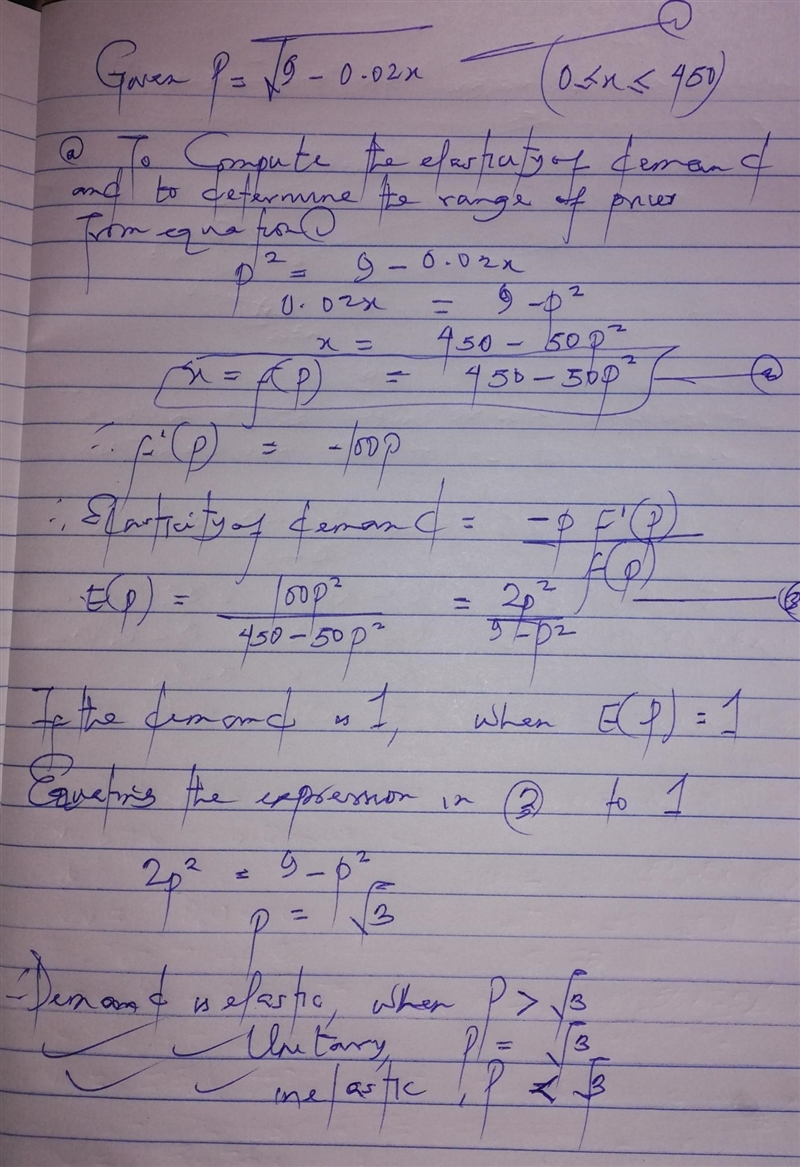 ①
Given p = √9 - 0.02x (0 ≤ x ≤ 450)
ⓐ To Compute the elasticity of demand
and to determine the range of prices
from equation ①
p² = 9 - 0.02x
0.02x = 9 - p²
x = 450 - 50p²
x = f(p) = 450 - 50p² ②
∴ f'(p) = -100p
∴ Elasticity of demand = -p F'(p)
f(p)
E(p) = 100p² = 2p² ③
450 - 50p² 9 - p²
If the demand is 1, when E(p) = 1
Equating the expression in ③ to 1
2p² = 9 - p²
p = √3
∴ Demand is elastic, when p > √3
Unitary, p = √3
inelastic, p < √3